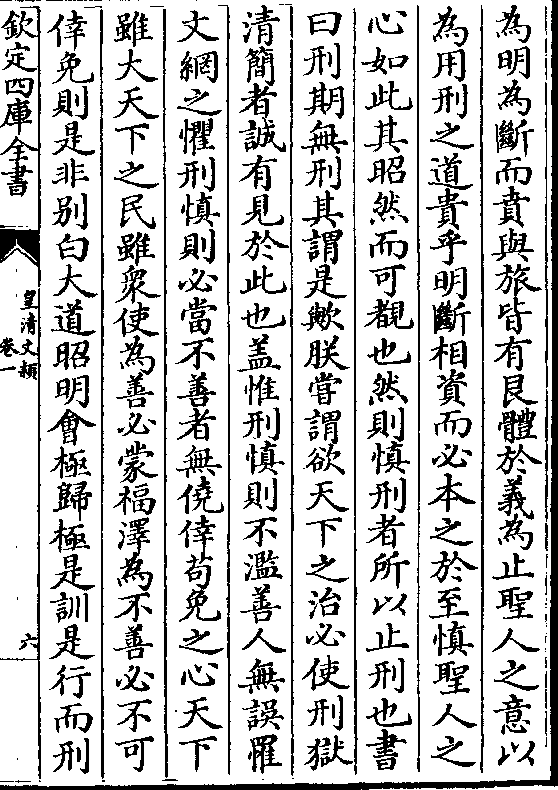 為明為斷而賁與旅皆有艮體於義為止聖人之意以
為用刑之道貴乎明斷相資而必本之於至慎聖人之
心如此其昭然而可覩也然則慎刑者所以止刑也書
曰刑期無刑其謂是歟朕嘗謂欲天下之治必使刑獄
清簡者誠有見於此也盖惟刑慎則不濫善人無誤罹
文網之懼刑慎則必當不善者無僥倖茍免之心天下
雖大天下之民雖衆使為善必蒙福澤為不善必不可
倖免則是非别白大道昭明會極歸極是訓是行而刑
欽定四庫全書
皇清文穎
卷一
六